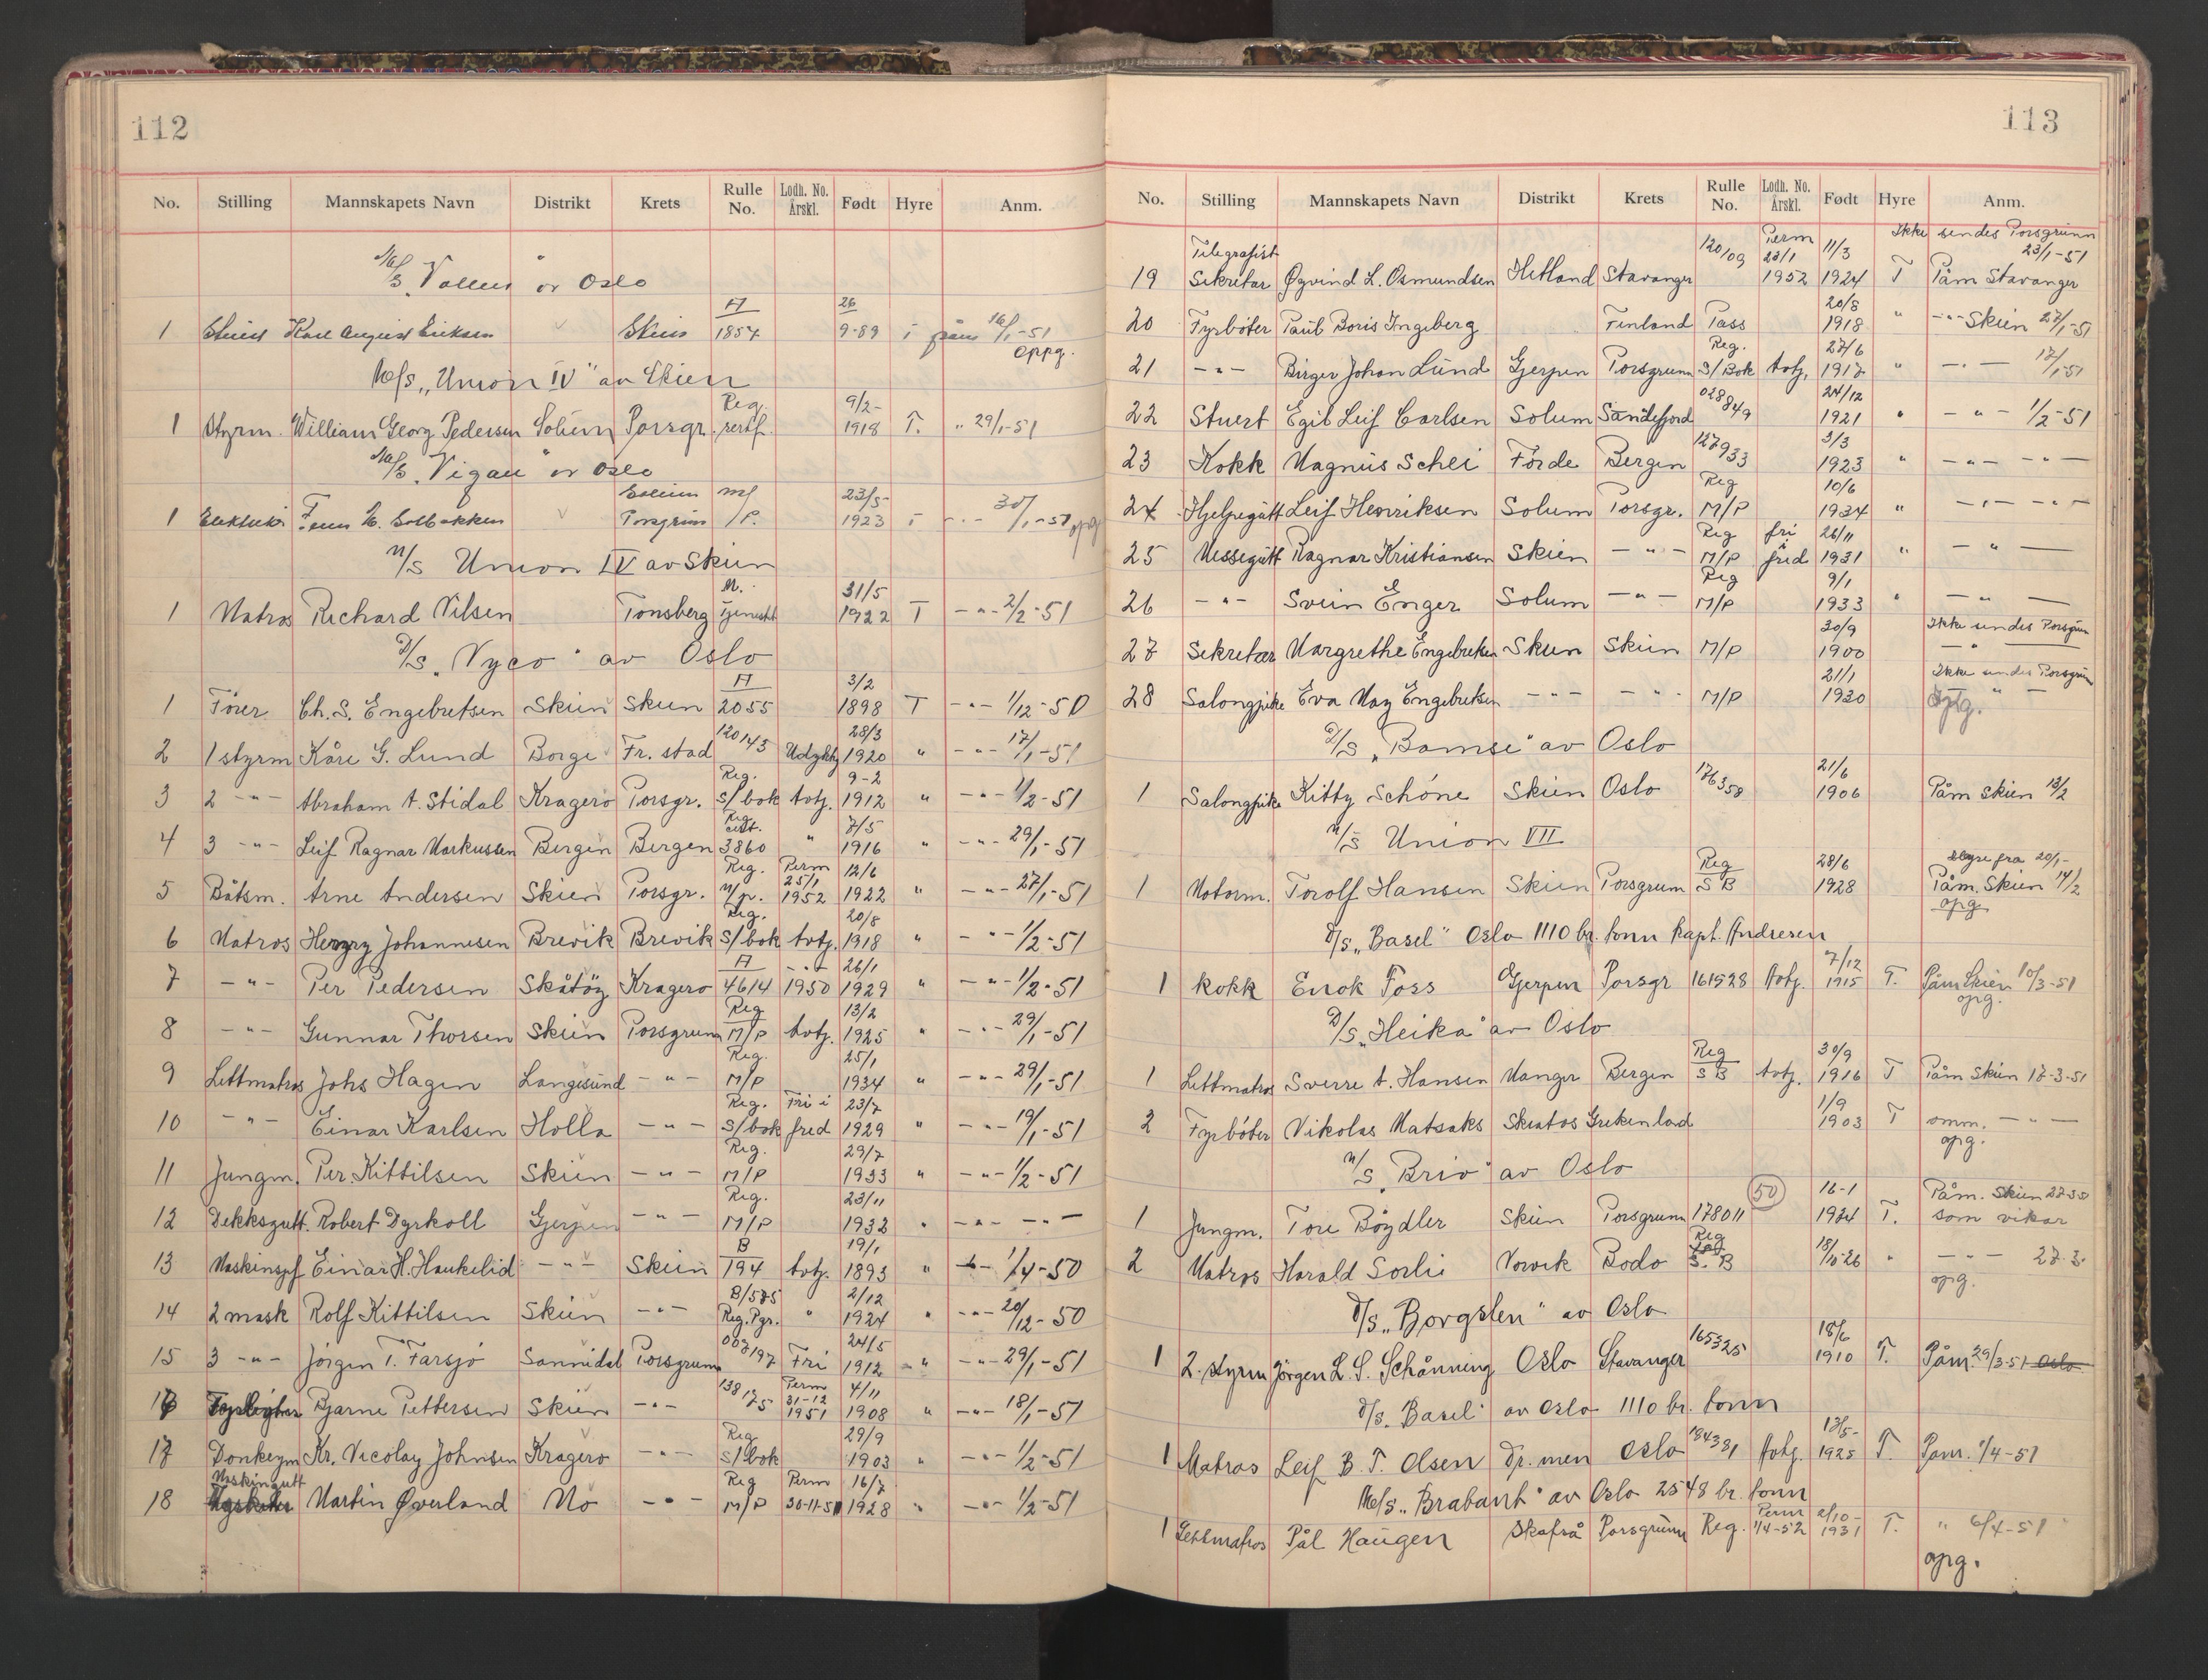 112
No. Stilling Mannskapets Navn Distrikt Krets Rulle No. Lodh. No. Årskl. Født Hyre Anm.
M/S "Vallus" av Oslo
1 Stuert Karl August Eriksen Skien A/1854 26/9-89 påm 16/1-51 oppg.
M/S "Union IV" av Skien
1 Styrm. William Georg Pedersen Solum Porsgr. Reg. sertf. 9/2-1918 T. " 29/1-51
M/S "Vigan" av Oslo
1 Elektriker Finn H. Solbakken Solum Porsgrunn M/P. 23/5-1923 - " - 30/1-51 opg
M/S Union IV av Skien
1 Matros Richard Nilsen Tønsberg M. Tjeneste 31/5 1922 T - " - 2/2-51
D/S "Nyco" av Oslo
1 Fører Ch. S. Engebretsen Skien Skien A/2055 3/2 1898 T - " - 1/12-50
2 1 styrm Kåre G. Lund Borge Fr. stad 120143 Udykt 28/3 1920 " - " - 17/1-51
3 2 - " - Abraham A. Stidal Kragerø Porsgr. Reg. S/bok Avtj. 9-2 1912 " - " - 1/2-51
4 3 - " - Leif Ragnar Markussen Bergen Bergen Reg. sert. 3860 " 7/5 1916 " - " - 29/1-51
5 Båtsm. Arne Andersen Skien Porsgr. Reg. M/p. Perm 25/1 1952 12/6 1922 " - " - 27/1-51
6 Matros Henry Johannesen Brevik Brevik Reg. S/bok Avtj. 20/8 1918 " - " - 1/2-51
7 - " - Per Pedersen Skåtøy Kragerø A/4614 - " - 1950 26/1 1929 " - " - 1/2-51
8 - " - Gunnar Thorsen Skien Porsgrunn Reg M/P Avtj. 13/2 1925 " - " - 29/1-51
9 Lettmatros Johs Hagen Langesund - " - Reg. M/P 25/1 1934 " - " - 29/1-51
10 - " - Einar Karlsen Holla - " - Reg. S/bok Fri i fred 23/7 1929 " - " - 19/1-51
11 Jungm. Per Kittilsen Skien - " - Reg. M/P 29/7 1933 " - " - 1/2-51
12 Dekksgutt. Robert Dyrkoll Gjerpen - " - Reg. M/P 23/11 1932 " - " - - " -
13 Maskinsjef Einar H. Haukelid - " - Skien B/194 Avtj. 19/1 1893 " - " - 1/4-50
14 2 mask Rolf Kittilsen Skien - " - B/575 Reg. Pgr. " 2/12 1924 " - " - 20/12-50
15 3 - " - Jørgen T. Farsjø Sannidal Porsgrunn 007197 Fri 24/5 1912 " - " - 29/1-51
16 Bjarne Pettersen Skien - " - 138175 Perm 31-12 1951 4/11 1908 " - " - 18/1-51
17 Donkeym Kr. Nicolay Johnsen Kragerø - " - Reg S/bok 29/9 1903 " - " - 1/2-51
18 Maskingutt Martin Øverland Mo - " - Reg M/P Perm 30-11-51 16/7 1928 " - " - 1/2-51
113
No. Stilling Mannskapets Navn Distrikt Krets Rulle No. Lodh. No. Årskl. Født Hyre Anm.
19 Telegrafist Sekretær Øyvind L. Osmundsen Hetland Stavanger 120109 Perm 23/1 1952 11/3 1924 T Ikke sendes Porsgrunn 23/1-51 Påm Stavanger
20 Fyrbøter Paul Boris Ingeberg Finland Pass 20/8 1918 " - " - Skien 27/1-51
21 - " - Birger Johan Lund Gjerpen Porsgrunn Reg. S/Bok Avtj. 27/6 1917 " - " - 17/1-51
22 Stuert Egil Leif Carlsen Solum Sandefjord 028849 24/12 1921 " - " - 1/2-51
23 Kokk Magnus Schei Førde Bergen 127933 3/3 1923 " - " - - " -
24 Hjelpegutt Leif Henriksen Solum Porsgr. Reg M/P 10/6 1934 " - " - - " -
25 Messegutt Ragnar Kristiansen Skien - " - Reg M/P fri i fred 26/11 1931 " - " -
26 - " - Svein Enger Solum - " - Reg M/P 9/1 1933 " - " -
27 Sekretær Margrethe Engebretsen Skien Skien M/P 30/9 1900 Ikke sendes Porsgrunn - " -
28 Salongpike Eva May Engebretsen - " - - " - M/P 21/1 1930 Ikke sendes Porsgrunn - " - Opg.
D/S "Bamse" av Oslo
1 Salongpike Kitty Schöne Skien Oslo 176358 21/6 1906 Påm Skien 13/2
M/S Union VII
1 Motorm. Torolf Hansen Skien Porsgrunn Reg SB 28/6 1928 Hyre fra 20/1- Påm. Skien 14/2 opg
D/S "Basel" Oslo 1110 br. tonn Kapt. Andresen
1 Kokk Enok Foss Gjerpen Porsgr 161928 Avtj. 7/12 1915 T. Påm Skien 10/3-51 opg.
D/S "Heika" av Oslo
1 Lettmatros Sverre A. Hansen Manger Bergen Reg SB Avtj. 30/9 1916 T Påm Skien 17-3-51
2 Fyrbøter Nikolas Matsaks Skiatos Grekenland 1/9 1903 T omm. - " - opg.
M/S "Brio" av Oslo
1 Jungm. Tore Bøydler Skien Porsgrunn 178011 50 16-1 1934 T. Påm. Skien 27-3-51 som vikar
2 Matros Harald Sørlie Norvik Bodø Reg S.B 18/10-26 " - " - 27-3- opg.
D/S "Borgsten" av Oslo
1 2. styrm Jørgen L. S. Schånning Oslo Stavanger 165325 18/6 1910 T. Påm 29/3-51 Oslo
D/S "Basel" av Oslo 1110 br. tonn
1 Matros Leif B. T. Olsen Dr. men Oslo 184381 Avtj. 13/5-1925 T. Påm. 1/4-51
M/S "Brabant" av Oslo 2548 br. tonn
1 Lettmatros Pål Haugen Skafså Porsgrunn Reg. Perm 1/4-52 2/10-1931 T. " 6/4-51 opg.